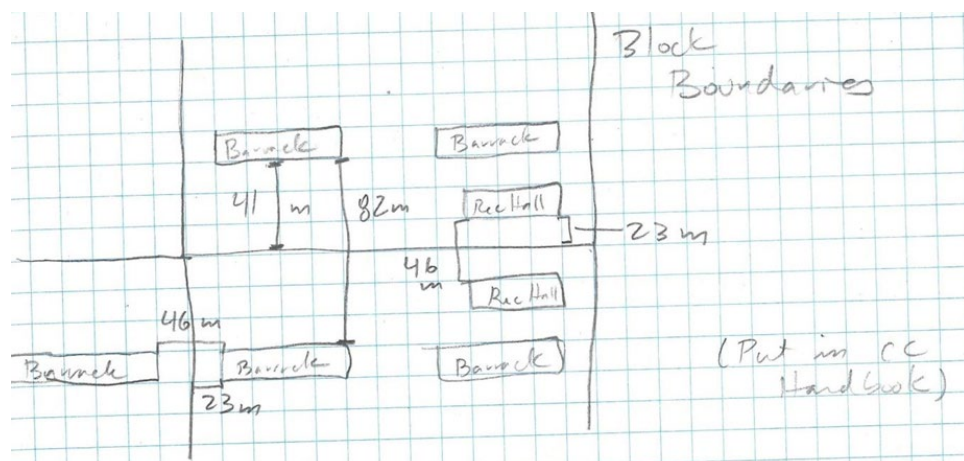 Block
Boundaries
Barrack
Barrack
41 m
82m
Rec Hall
23 m
46
m
Rec Hall
46 m
Barrack
Barrack
Barrack
23m
(Put in CC
Handbook)